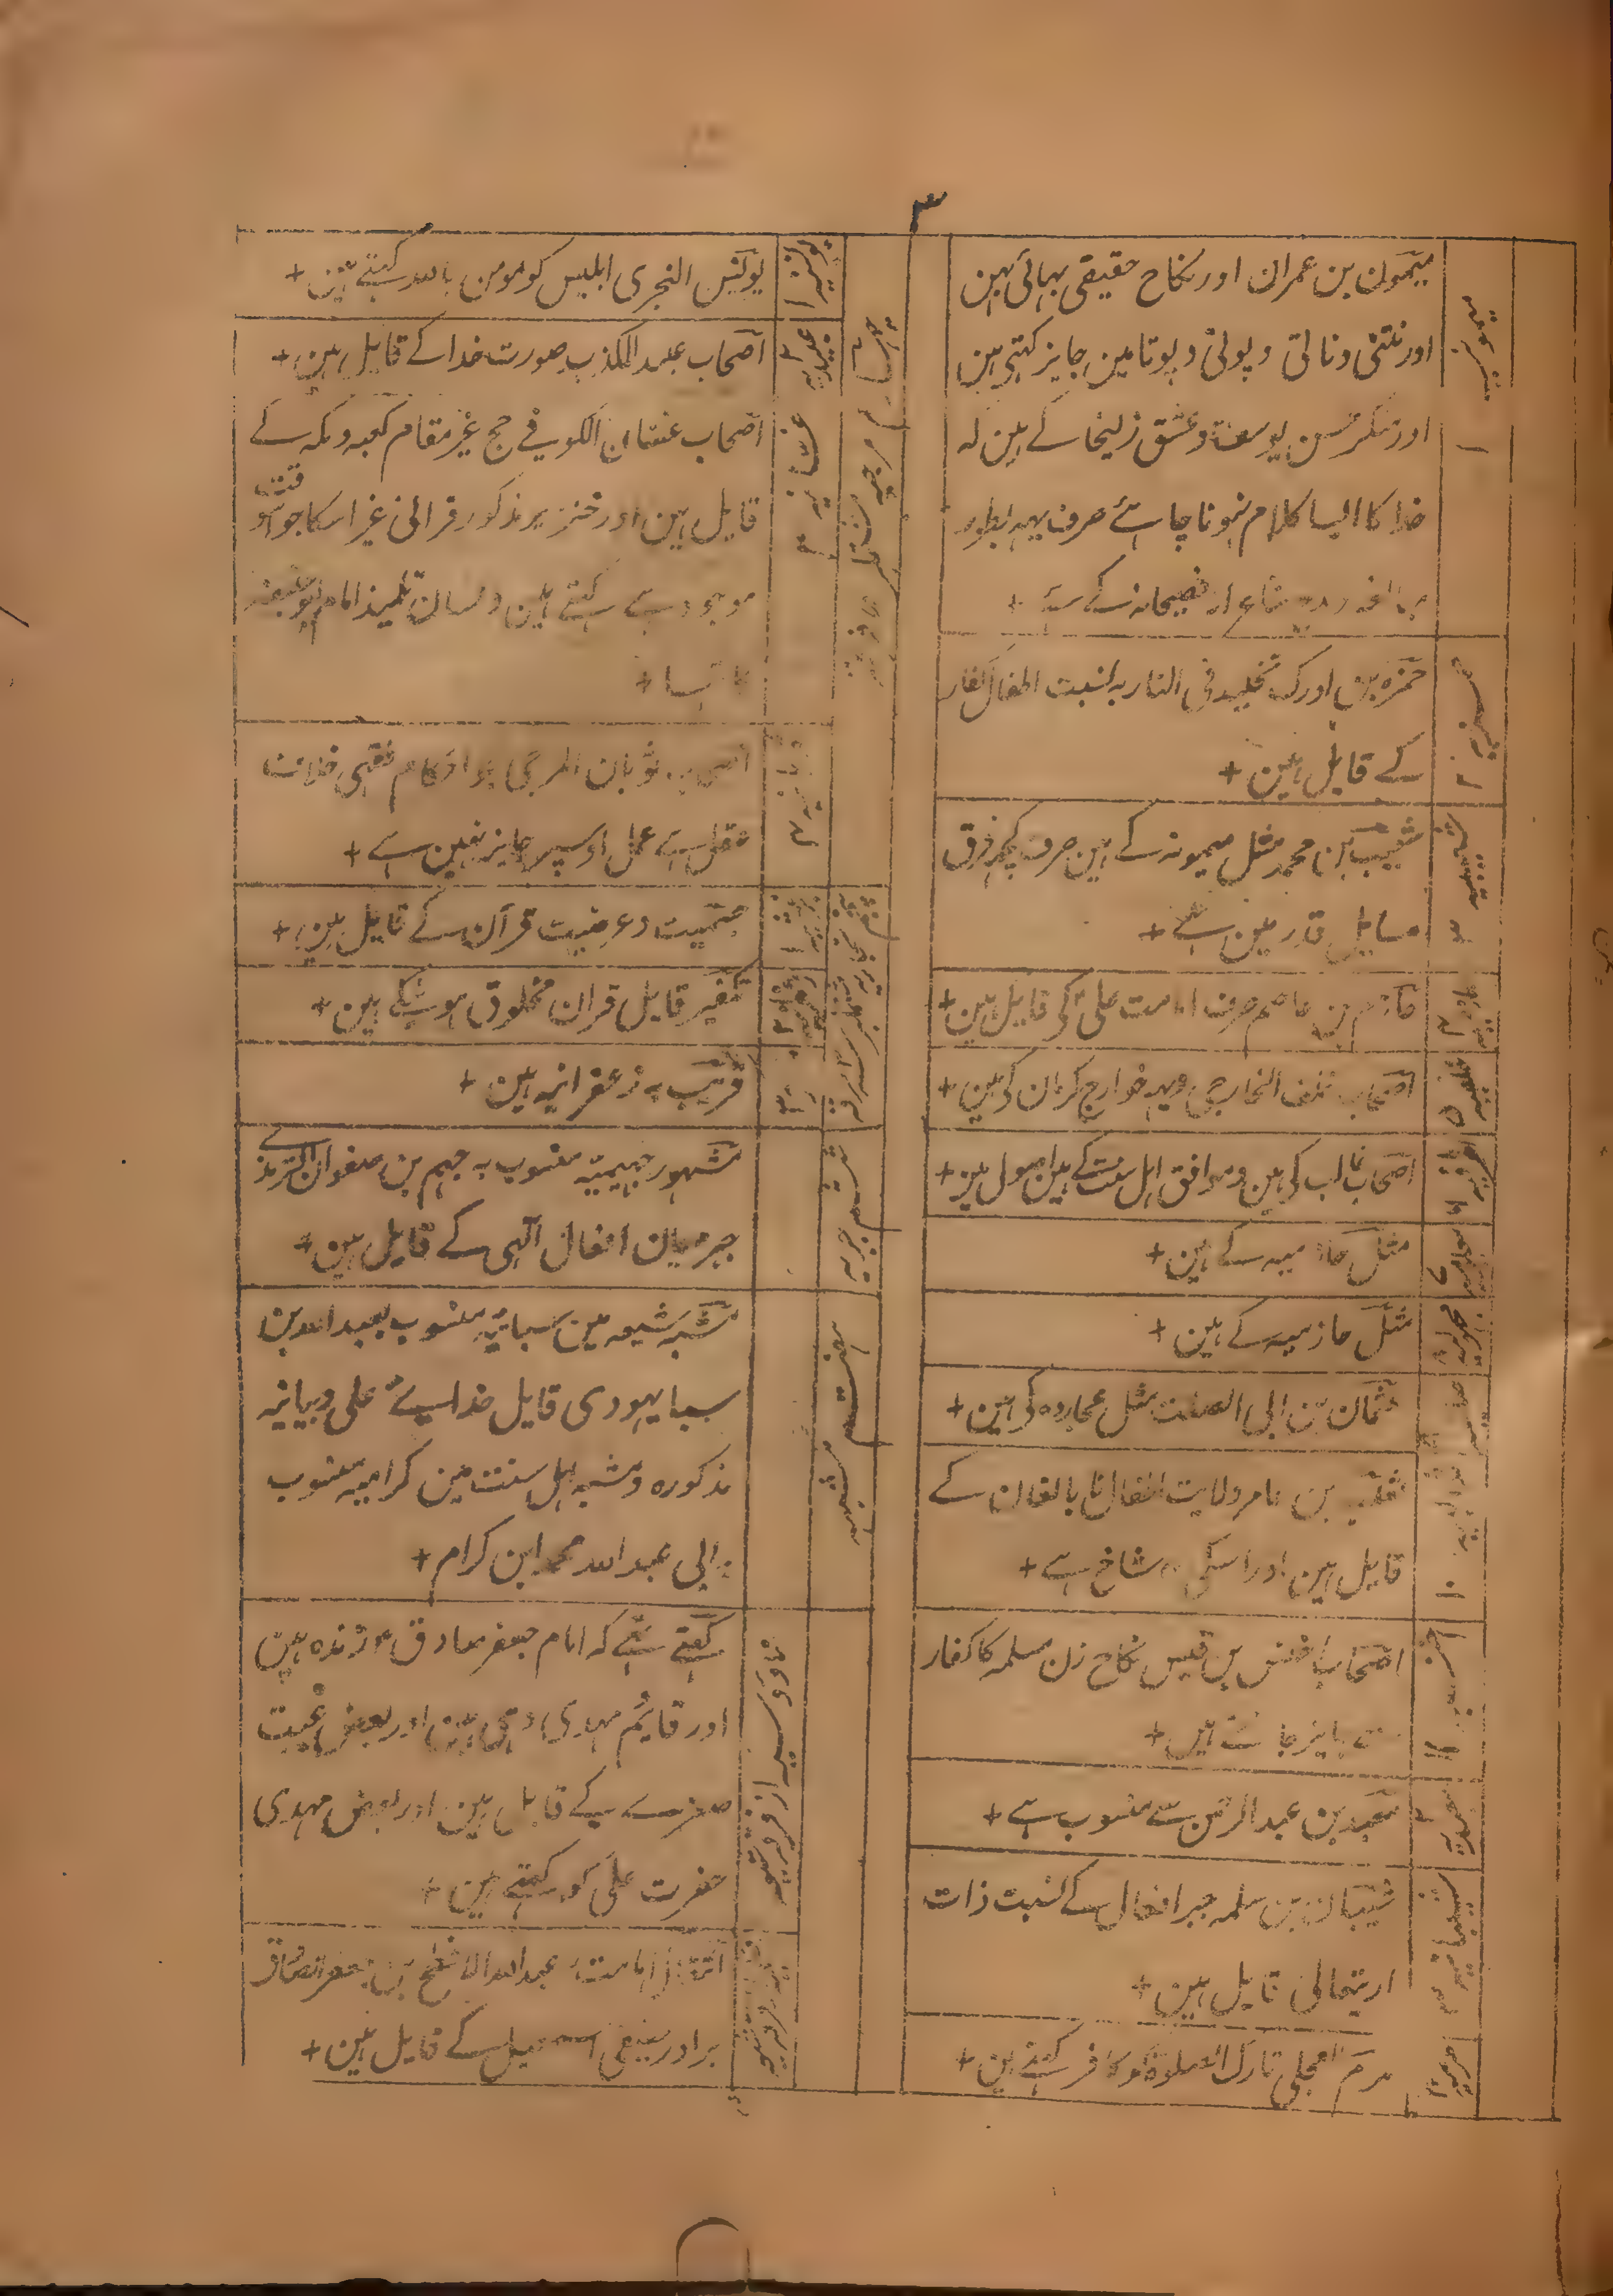 ۳
میمون بن عمران اور نکاح حقیقی بہائی بہن
اور نتنی ونالی وپوتی وپوتا مین جایز کہتی ہین
اور منکر حسن یوسف وعشق زلیخا کے ہین کہ
خدا کا ایسا کلام نہونا چاہئے صرف یہہ بطور
شاعرانہ فصیحانہ کے ہے +
حمزیہ ۲
حمزہ بن اورک تخلید فی النار بہ نسبت اطفال کفار
کے قایل ہین +
شعیبیہ ۳
شعیب ابن محمد مثل میمونہ کے ہین صرف کچہہ فرق
مسایل قدر مین ہے +
حازم بن عاصم صرف امامت علی کی قایل ہین +
خلفیہ ۵
اصحاب خلف الخارجی ویہہ خوارج کرمان کی ہین +
۶
اصحاب غالب کی ہین وموافق اہل سنت کے ہین اصول مین +
معلومیہ ۷
مثل حازمیہ کے ہین +
مجہولیہ ۸
مثل حازمیہ کے ہین +
عثمان بن ابی الصلت مثل عجاردہ کی ہین +
۱۰
ثعلب بن عامر ولایت اطفال نابالغان کے
قایل ہین اور اسکی شاخ ہے +
اخنسیہ ۱۱
اصحاب اخنس بن قیس نکاح زن مسلمہ کا کفار
سے جایز جانتے ہین +
معبدیہ
معبد بن عبد الرحمن سے منسوب ہے +
شیبانیہ
شیبان بن سلمہ جبر افعال کے نسبت ذات
اریتعالی قایل ہین +
مکرم العجلی تارک الصلوۃ کو کافر کہتے ہین +
مرجیہ
یونسیہ ۱
یونس النجری ابلیس کو مومن باللہ کہتے ہین +
عبیدیہ ۲
اصحاب عبید المکذب صورت خدا کے قایل ہین +
غسانیہ ۳
اصحاب غسان الکوفی حج غیر مقام کعبہ ومکہ کے
قایل ہین اور خنزیر مذکور قرانی غیر اسکا جو اسوقت
موجود ہے کہتے ہین وغسان تلمیذ امام ابوحنیفہ
کا تہا +
ثوبان المرجی احکام فقہی خلاف
عقل ہے عمل اوسپر جایز نہین ہے +
جسمیت وعرضیت قرآن کے قایل ہین +
تکفیر قایل قران مخلوق ہونیکے ہین +
قریب بہ زعفرانیہ ہین +
ششم جبریہ
مشہور جہیمیہ منسوب بہ جہم بن صفوان الترمذے
جبریان افعال آلہی کے قایل ہین +
ہفتم مشبہہ
مشبہ شیعہ مین سبائیہ منسوب بعبد اللہ بن
سبا یہودی قایل خدایئے علی وبیانیہ
مذکورہ ومشبہ اہل سنت مین کرامیہ منسوب
بابی عبد اللہ محمد ابن کرام +
ناووسیہ از فرق شیعہ
کہتے تہے کہ امام جعفر صادق ؑ زندہ ہین
اور قایم مہدی وہی ہین اور بعض غیبت
صغرے کے قایل ہین اور بعض مہدی
حضرت علی کو کہتے ہین +
انتقال امامت عبد اللہ الافطح بن جعفر الصادق
برادر حقیقی اسمعیل کے قایل ہین +